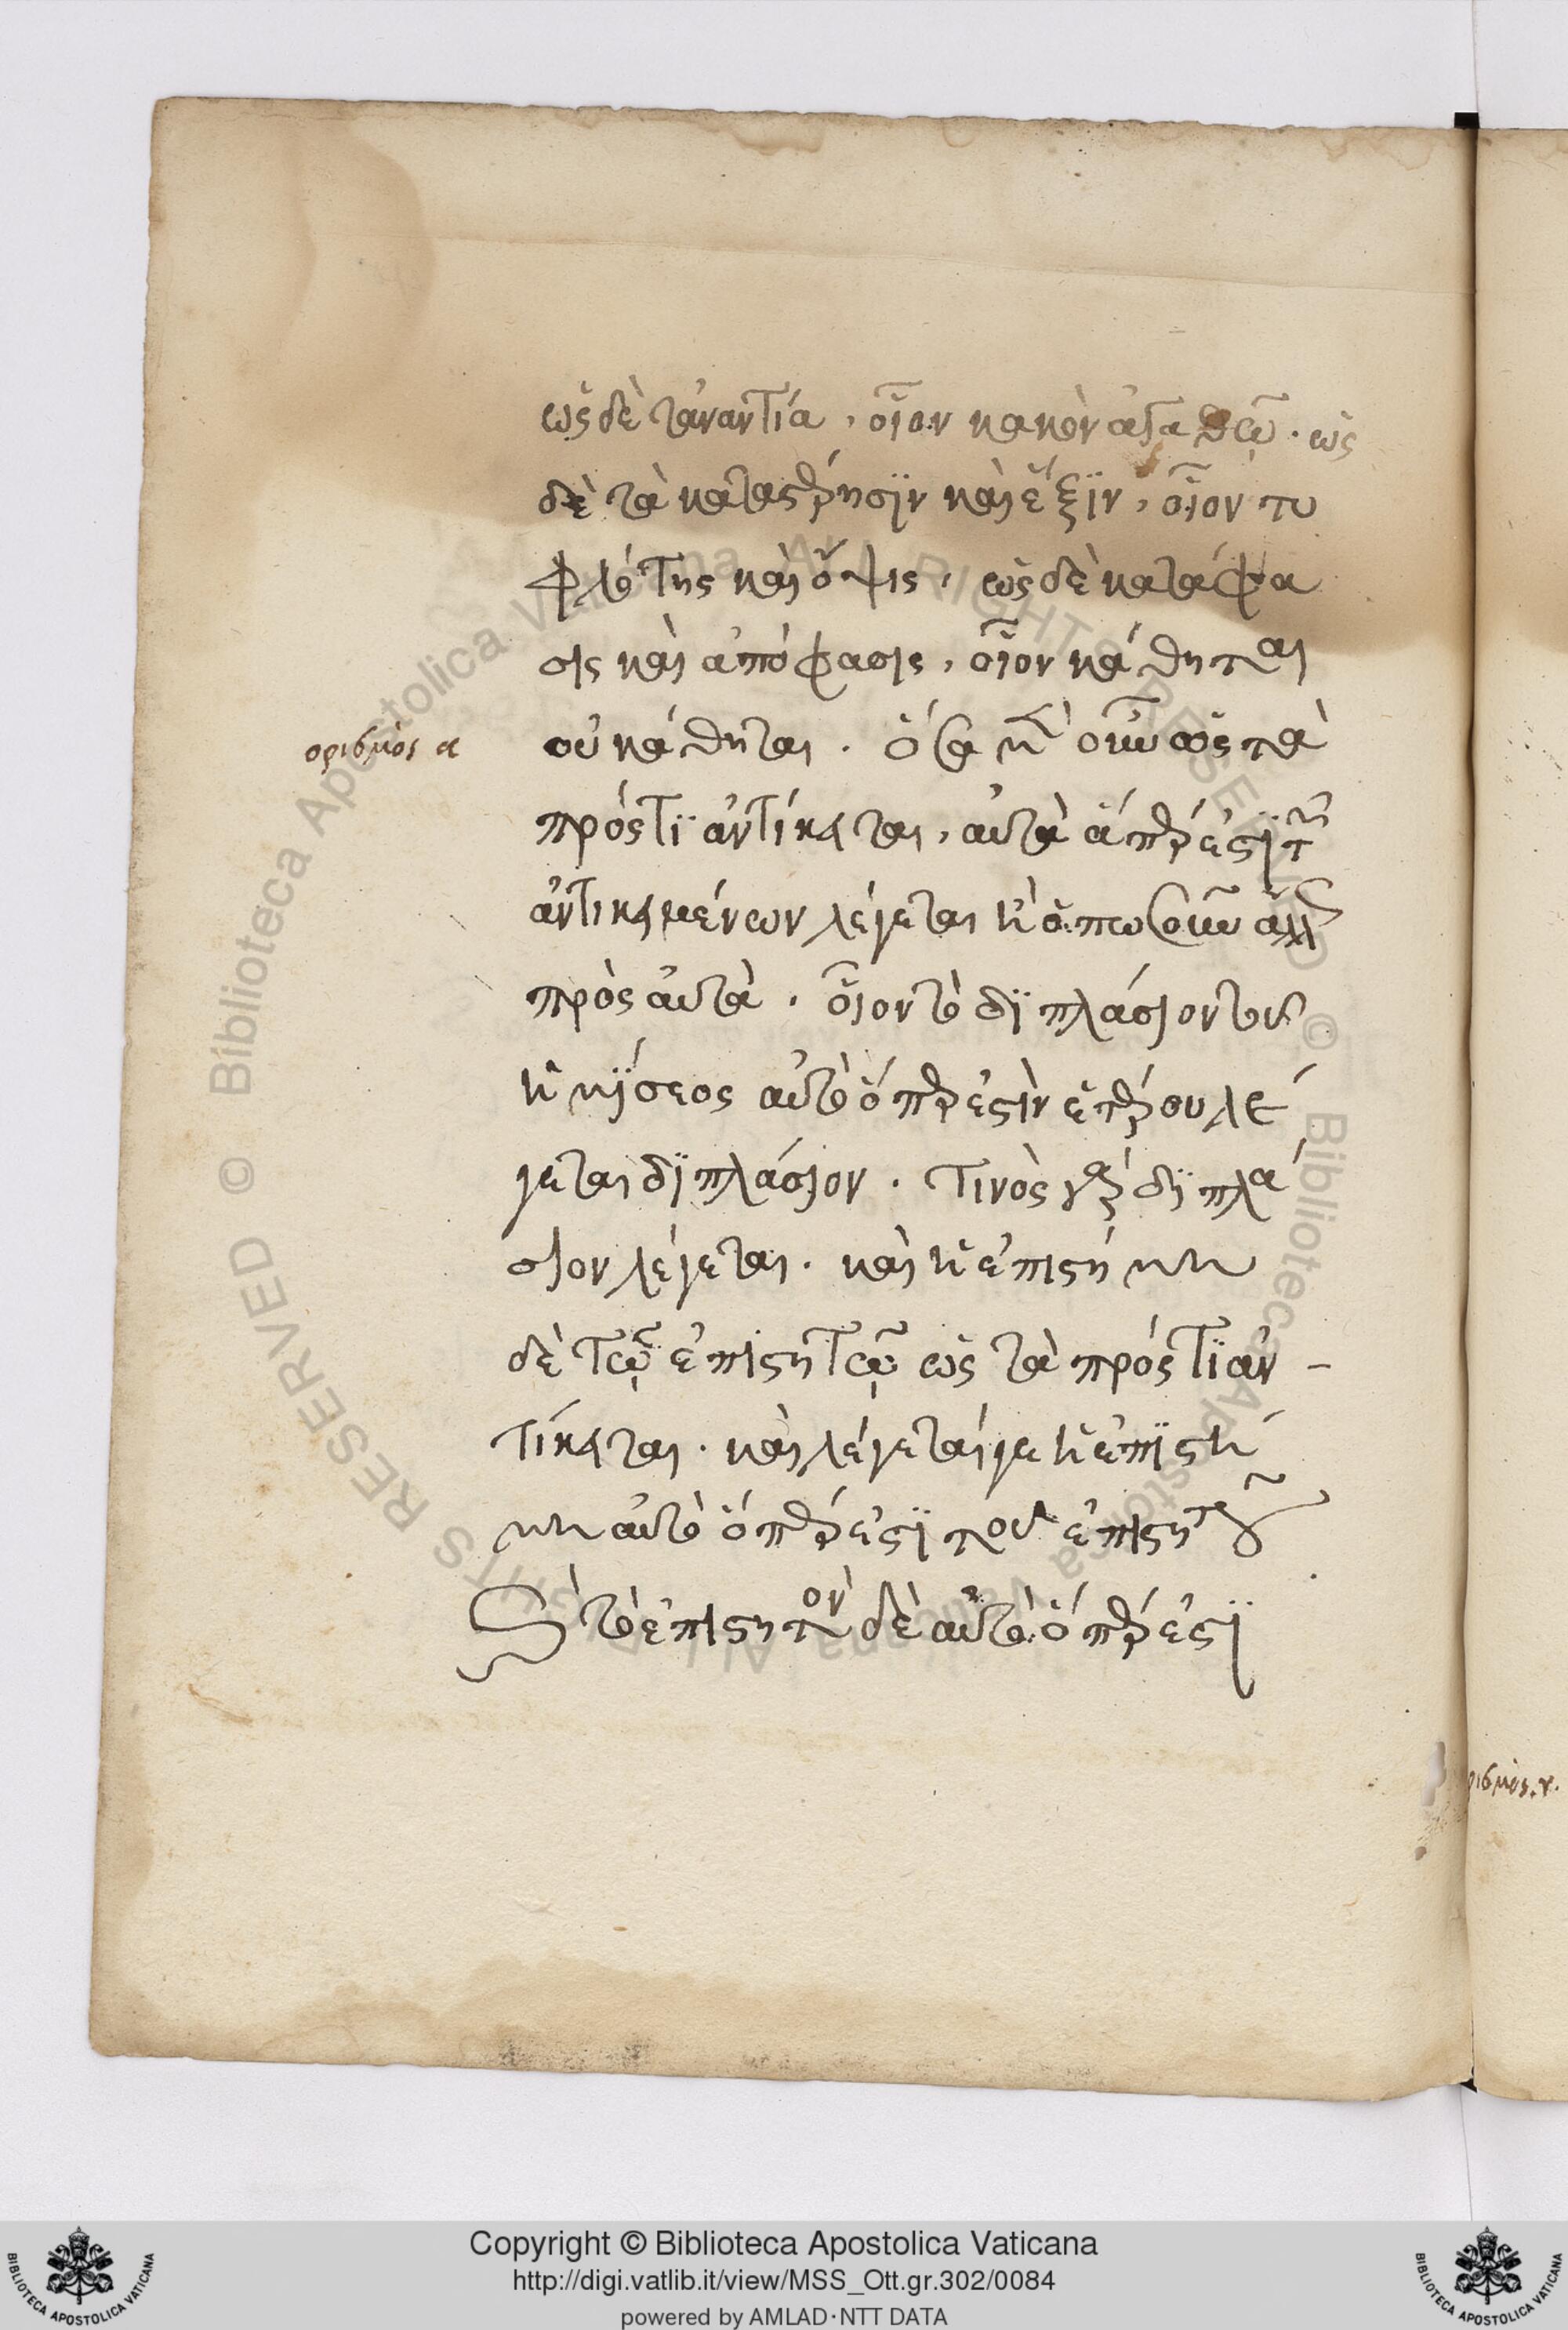 ὡς δὲ τἀναντία, οἷον κακὸν ἀγαθῶ. ὡς
δὲ τὰ κατὰ στέρησϊν καὶ ἕξϊν, οἷον τυ
φλότης καὶ ὄψις, ὡς δὲ κατάφα
σις καὶ ἀπόφασις, οἷον κάθηται
οὐ κάθηται. ὅσα μὲν οὖν ὡς τὰ
ορισμὸς α
πρός τϊ ἀντίκειται, αὐτὰ ἅπερ ἐστϊ τῶν
ἀντικειμένων λέγεται ἢ ὁπωσοῦν ἄλλως
πρὸς αὐτὰ. οἷον τὸ δϊπλάσιον τοῦ
ἡμϊσεος αὐτὸ ὅπερ ἐστὶν ἑτέρου λέ
γεται δϊπλάσιον. τινὸς γὰρ δϊπλά
σιον λέγεται. καὶ ἡ ἐπιστήμη
δὲ τῷ ἐπιστητῷ ὡς τὰ πρός τϊ ἀν-
τίκειται. καὶ λέγεταί γε ἡ ἐπϊστή
μη αὐτὸ ὅπερ ἐστϊ τοῦ ἐπιστητοῦ
καὶ τὸ ἐπιστητὸν δὲ αὐτὸ ὅπερ ἐστϊ
ρισμὸς.γ.
Copyright © Biblioteca Apostolica Vaticana
http://digi.vatlib.it/view/MSS_Ott.gr.302/0084
powered by AMLAD·NTT DATA